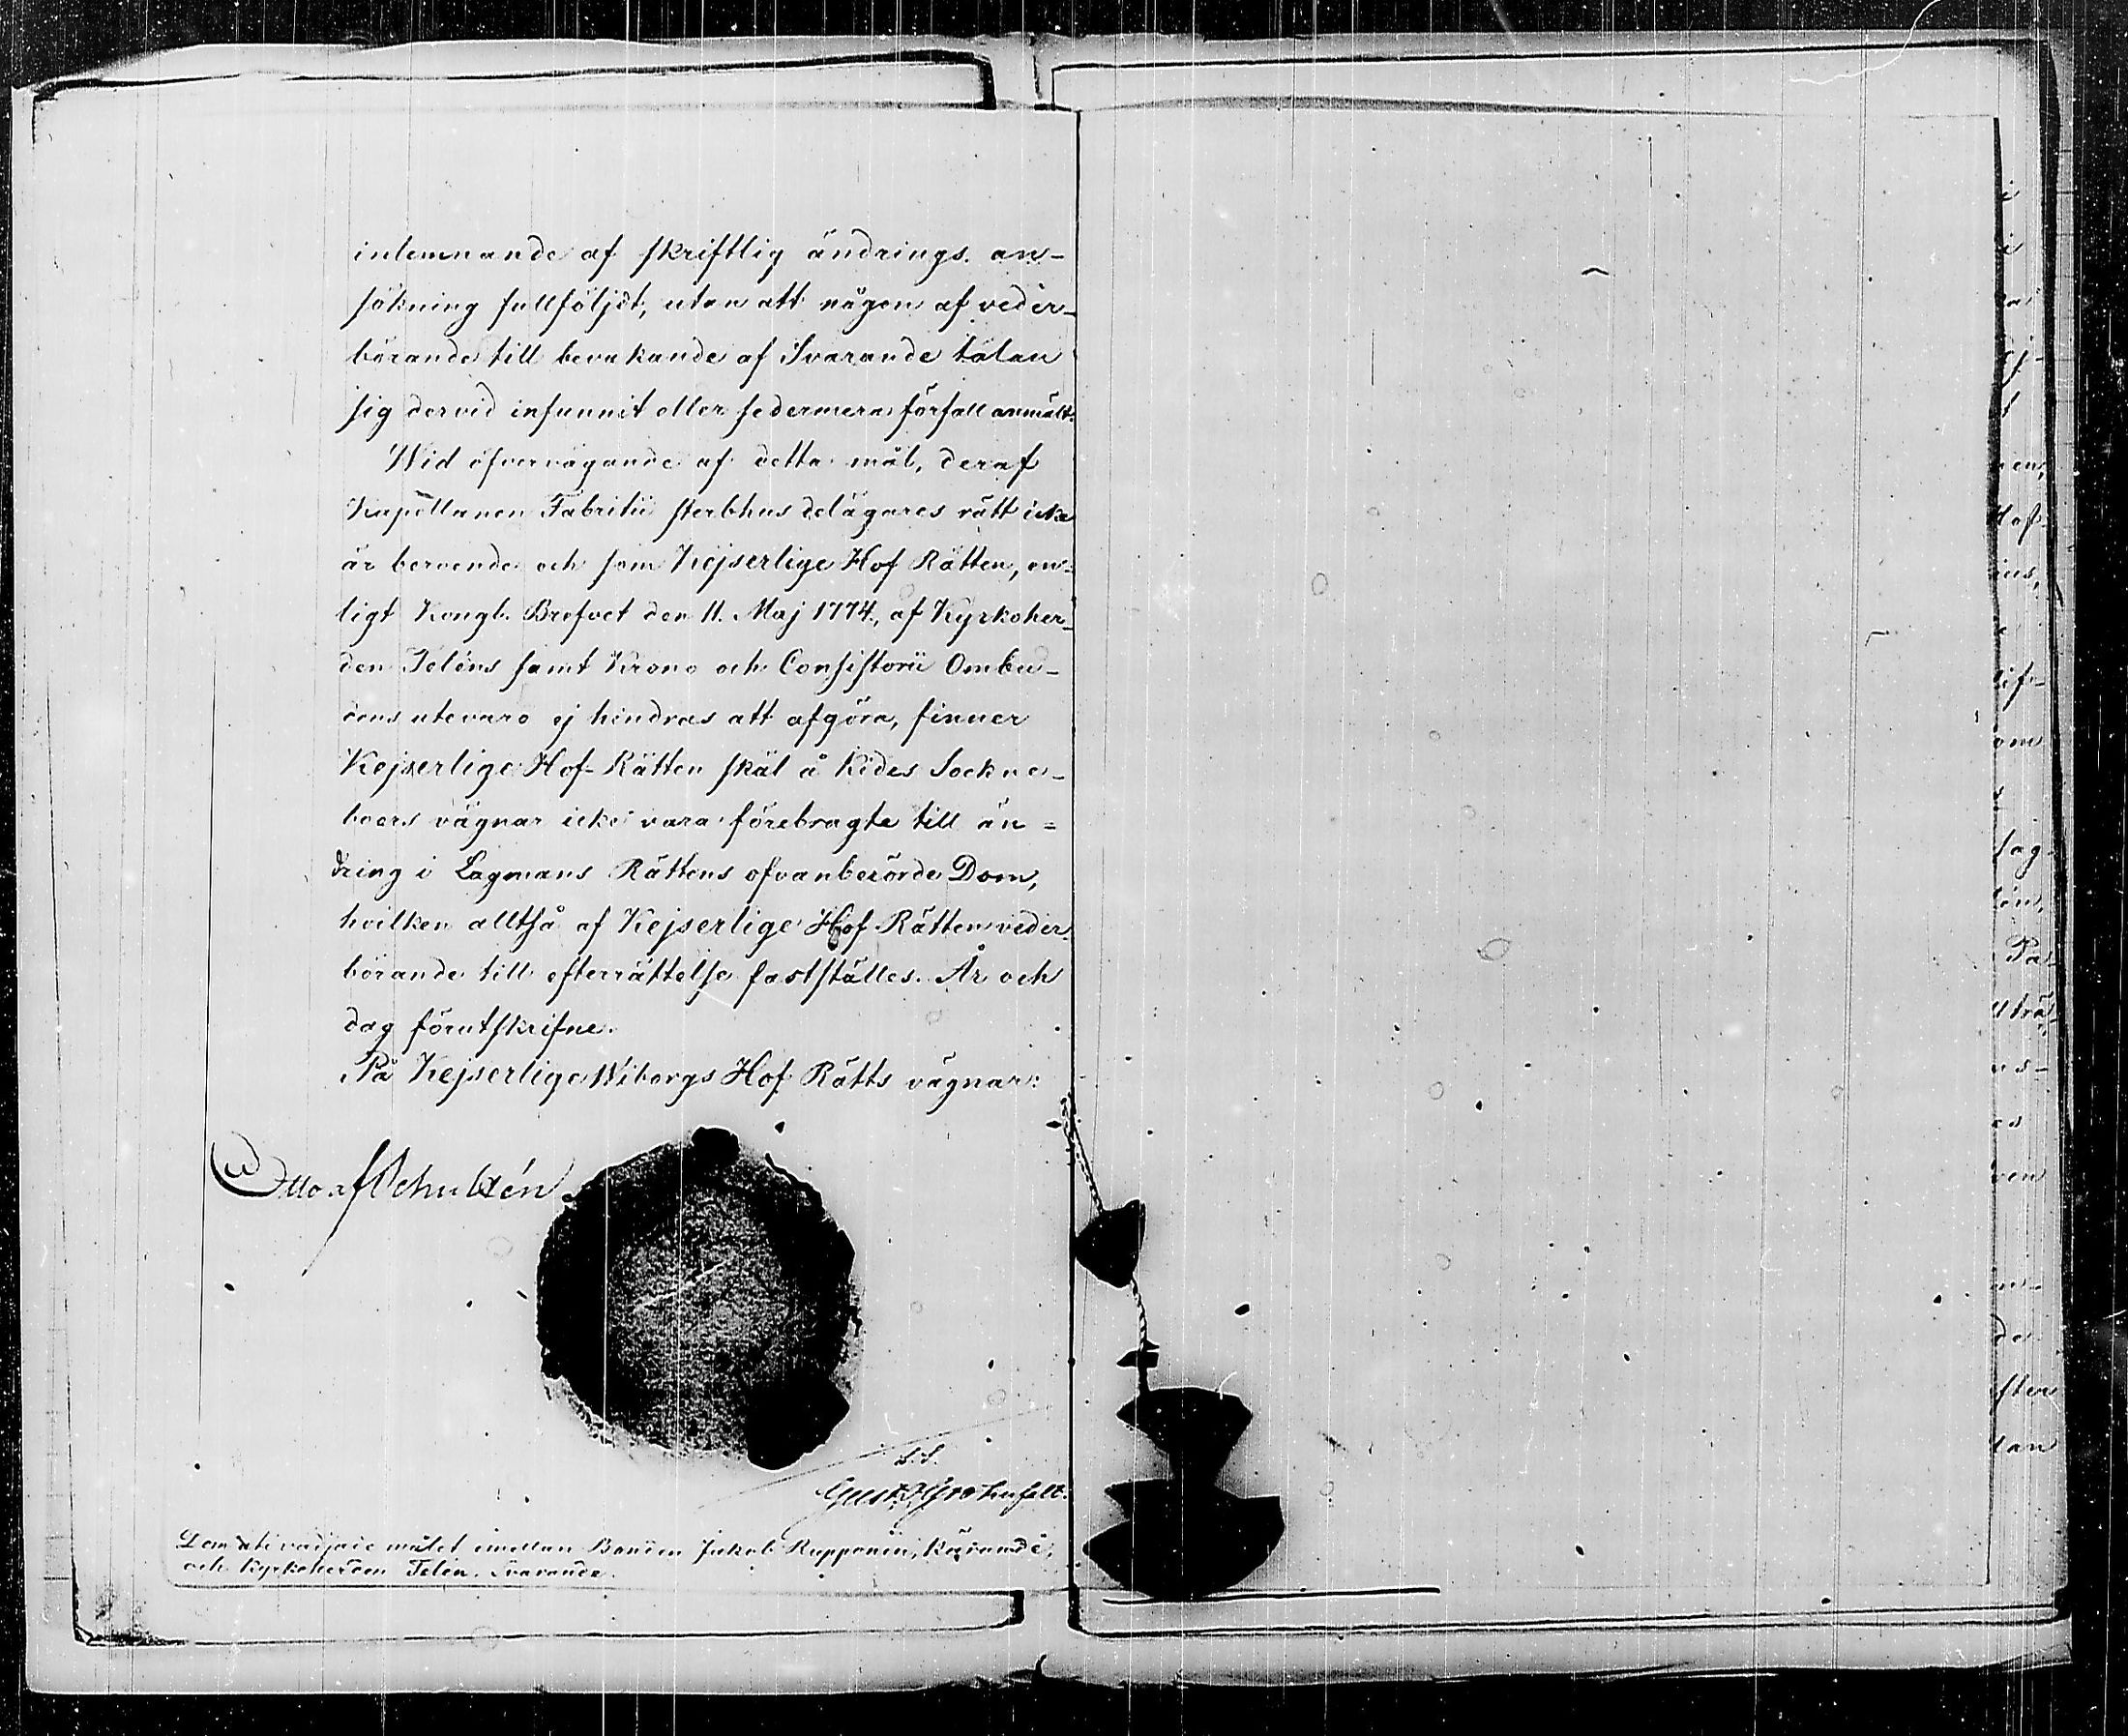 inlemnande af skriftlig ändrings an-
sökning fullföljdt, utan att någon af veder-
börande till bevakande af Svarande talan
sig dervid infunnit eller sedermera förfall anmält.
Wid öfvervägande af detta mål, deraf
Kapellanen Fabritii sterbhus delägares rätt icke
är beroende och som Kejserlige Hof Rätten, en-
ligt Kongl. Brefvet den 11. Maj 1774, af Kyrkoher-
den Teléns samt Krono och Consistorii Ombu-
dens utevaro ej hindras att afgöra, finner
Kejserlige Hof-Rätten skäl å Kides Sockne-
boers vägnar icke vara förebragte till än-
dring i Lagmans Rättens ofvanberörde Dom,
hvilken alltså af Kejserlige Hof Rätten veder-
börande till efterrättelse fastställes. År och
dag förutskrifne.
På Kejserlige Wiborgs Hof Rätts vägnar:
Otto af Schultén
L.S.
Gust. Grotenfelt.
Dom uti vädjade målet emellan Bonden Jakob Rupponen, Kärande,
och Kyrkoherden Telén, Svarande.